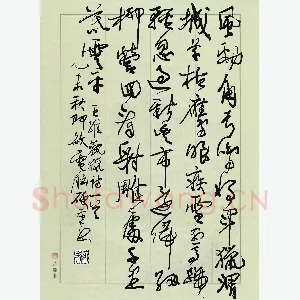 風勁角弓鳴將軍獵渭
城草枯鷹眼疾雪盡馬蹄
輕忽過新豐市還歸細
柳營回看射雕處千里
暮雲平 王維觀獵詩
乙未秋